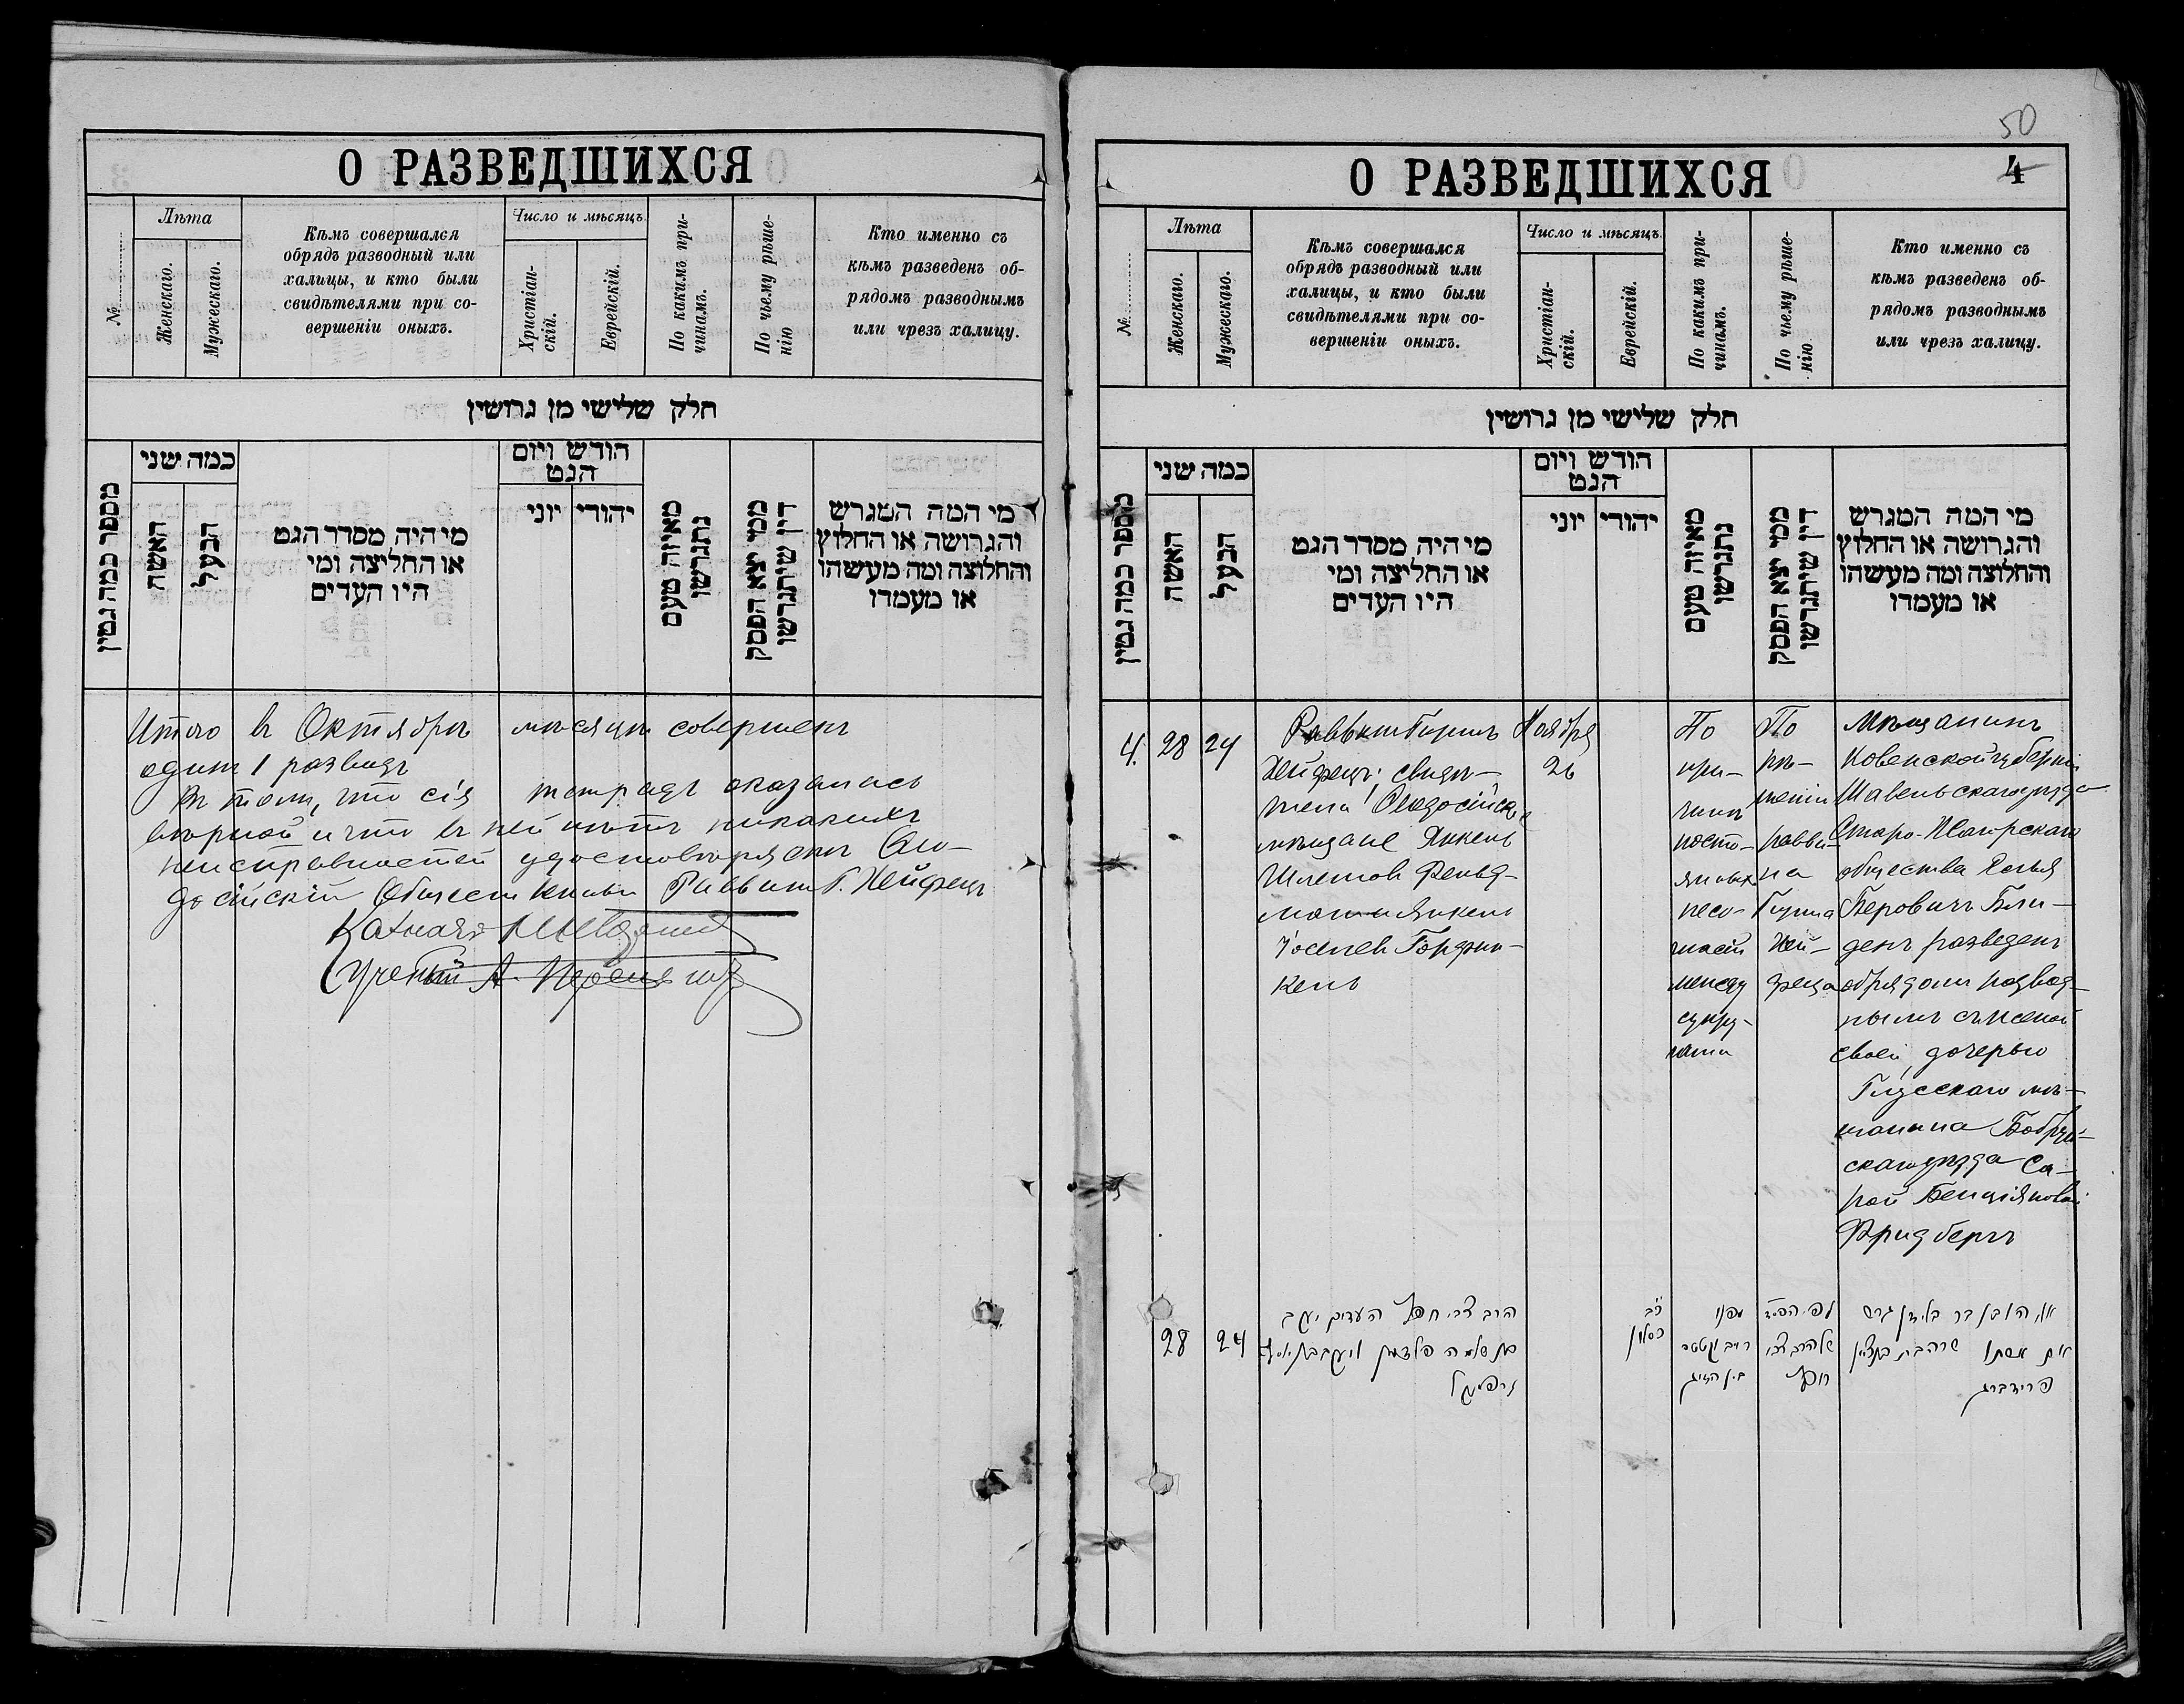 О РАЗВЕДШИХСЯ
№
Лѣта
Женскаго.
Мужескаго.
Кѣмъ совершался
обрядъ разводный или
халицы, и кто были
свидѣтелями при со-
вершеніи оныхъ.
Число и мѣсяцъ.
Христіан-
скій.
Еврейскій.
По какимъ при-
чинамъ.
По чьему рѣше-
нію
Кто именно съ
кѣмъ разведенъ об-
рядомъ разводнымъ
или чрезъ халицу.
חלק שלישי מן גרושין
מספר כמה גטין
כמה שני
האשה
הבעל
מי היה מסדר הגט
או החליצה ומי
היו העדים
חודש ויום
הגט
יוני
יהודי
מאיזה טעם
נתגרשו
ממי יצא הפסק
דין שיתגרשו
מי המה המגרש
והגרושה או החלוץ
והחלוצה ומה מעשהו
או מעמדו
Итого въ Октябрѣ мѣсяцѣ совершенъ
одинъ 1 разводъ
Въ томъ, что сія тетрадь оказалась
вѣрной и что въ ней нѣтъ никакихъ
неисправностей удостовѣряемъ Ѳео-
досійскій Обществен Раввинъ Г. Хейфецъ
Ученый А.
50
4
О РАЗВЕДШИХСЯ
№
Лѣта
Женскаго.
Мужескаго.
Кѣмъ совершался
обрядъ разводный или
халицы, и кто были
свидѣтелями при со-
вершеніи оныхъ.
Число и мѣсяцъ.
Христіан-
скій.
Еврейскій.
По какимъ при-
чинамъ.
По чьему рѣше-
нію
Кто именно съ
кѣмъ разведенъ об-
рядомъ разводнымъ
или чрезъ халицу.
חלק שלישי מן גרושין
מספר כמה גטין
כמה שני
האשה
הבעל
מי היה מסדר הגט
או החליצה ומי
היו העדים
חודש ויום
הגט
יוני
יהודי
מאיזה טעם
נתגרשו
ממי יצא הפסק
דין שיתגרשו
מי המה המגרש
והגרושה או החלוץ
והחלוצה ומה מעשהו
או מעמדו
4. 28 24
Раввинъ Гиршъ
Хейфецъ; свидѣ-
тели Ѳеодосійскіе
мѣщане Янкель
Шлемов Фельд-
манъ и Янкель
Іоселев Горфин-
кель
Ноября
26
По
при-
чинѣ
посто-
янныхъ
несо-
гласій
между
супру-
гами
По
рѣ-
шенію
равви-
на
Гирша
Хей-
феца
Мѣщанинъ
Ковенской губерніи
Шавельскаго уѣзда
Старо-Жагорскаго
общества
Беровичъ Бли-
денъ разведенъ
обрядомъ развод-
нымъ съ женой
своей, дочерью
Глусскаго мѣ-
щанина Бобруй-
скаго уѣзда Са-
рой Бенціановой
Фридбергъ
28 24
הרב צבי חפץ העדים יעקב
בן שלמה פלדמן ויעקב בן יוסף
גרפינקל
כ״ב
כסלו
מפני
ריב וקטטה
בין הזוג
לפי הפס״ד
של הרב צבי
חפץ
בר בלידן גרש
את אשתו שרה בת בנציון
פרידברג